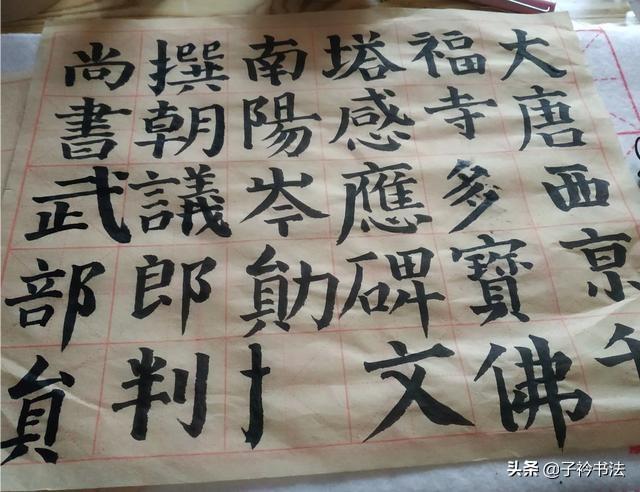 大唐西亰千
福寺多寶佛
塔感應碑文
南陽岑勛
撰朝議郎判
尚書武部貟
头条 @子衿书法